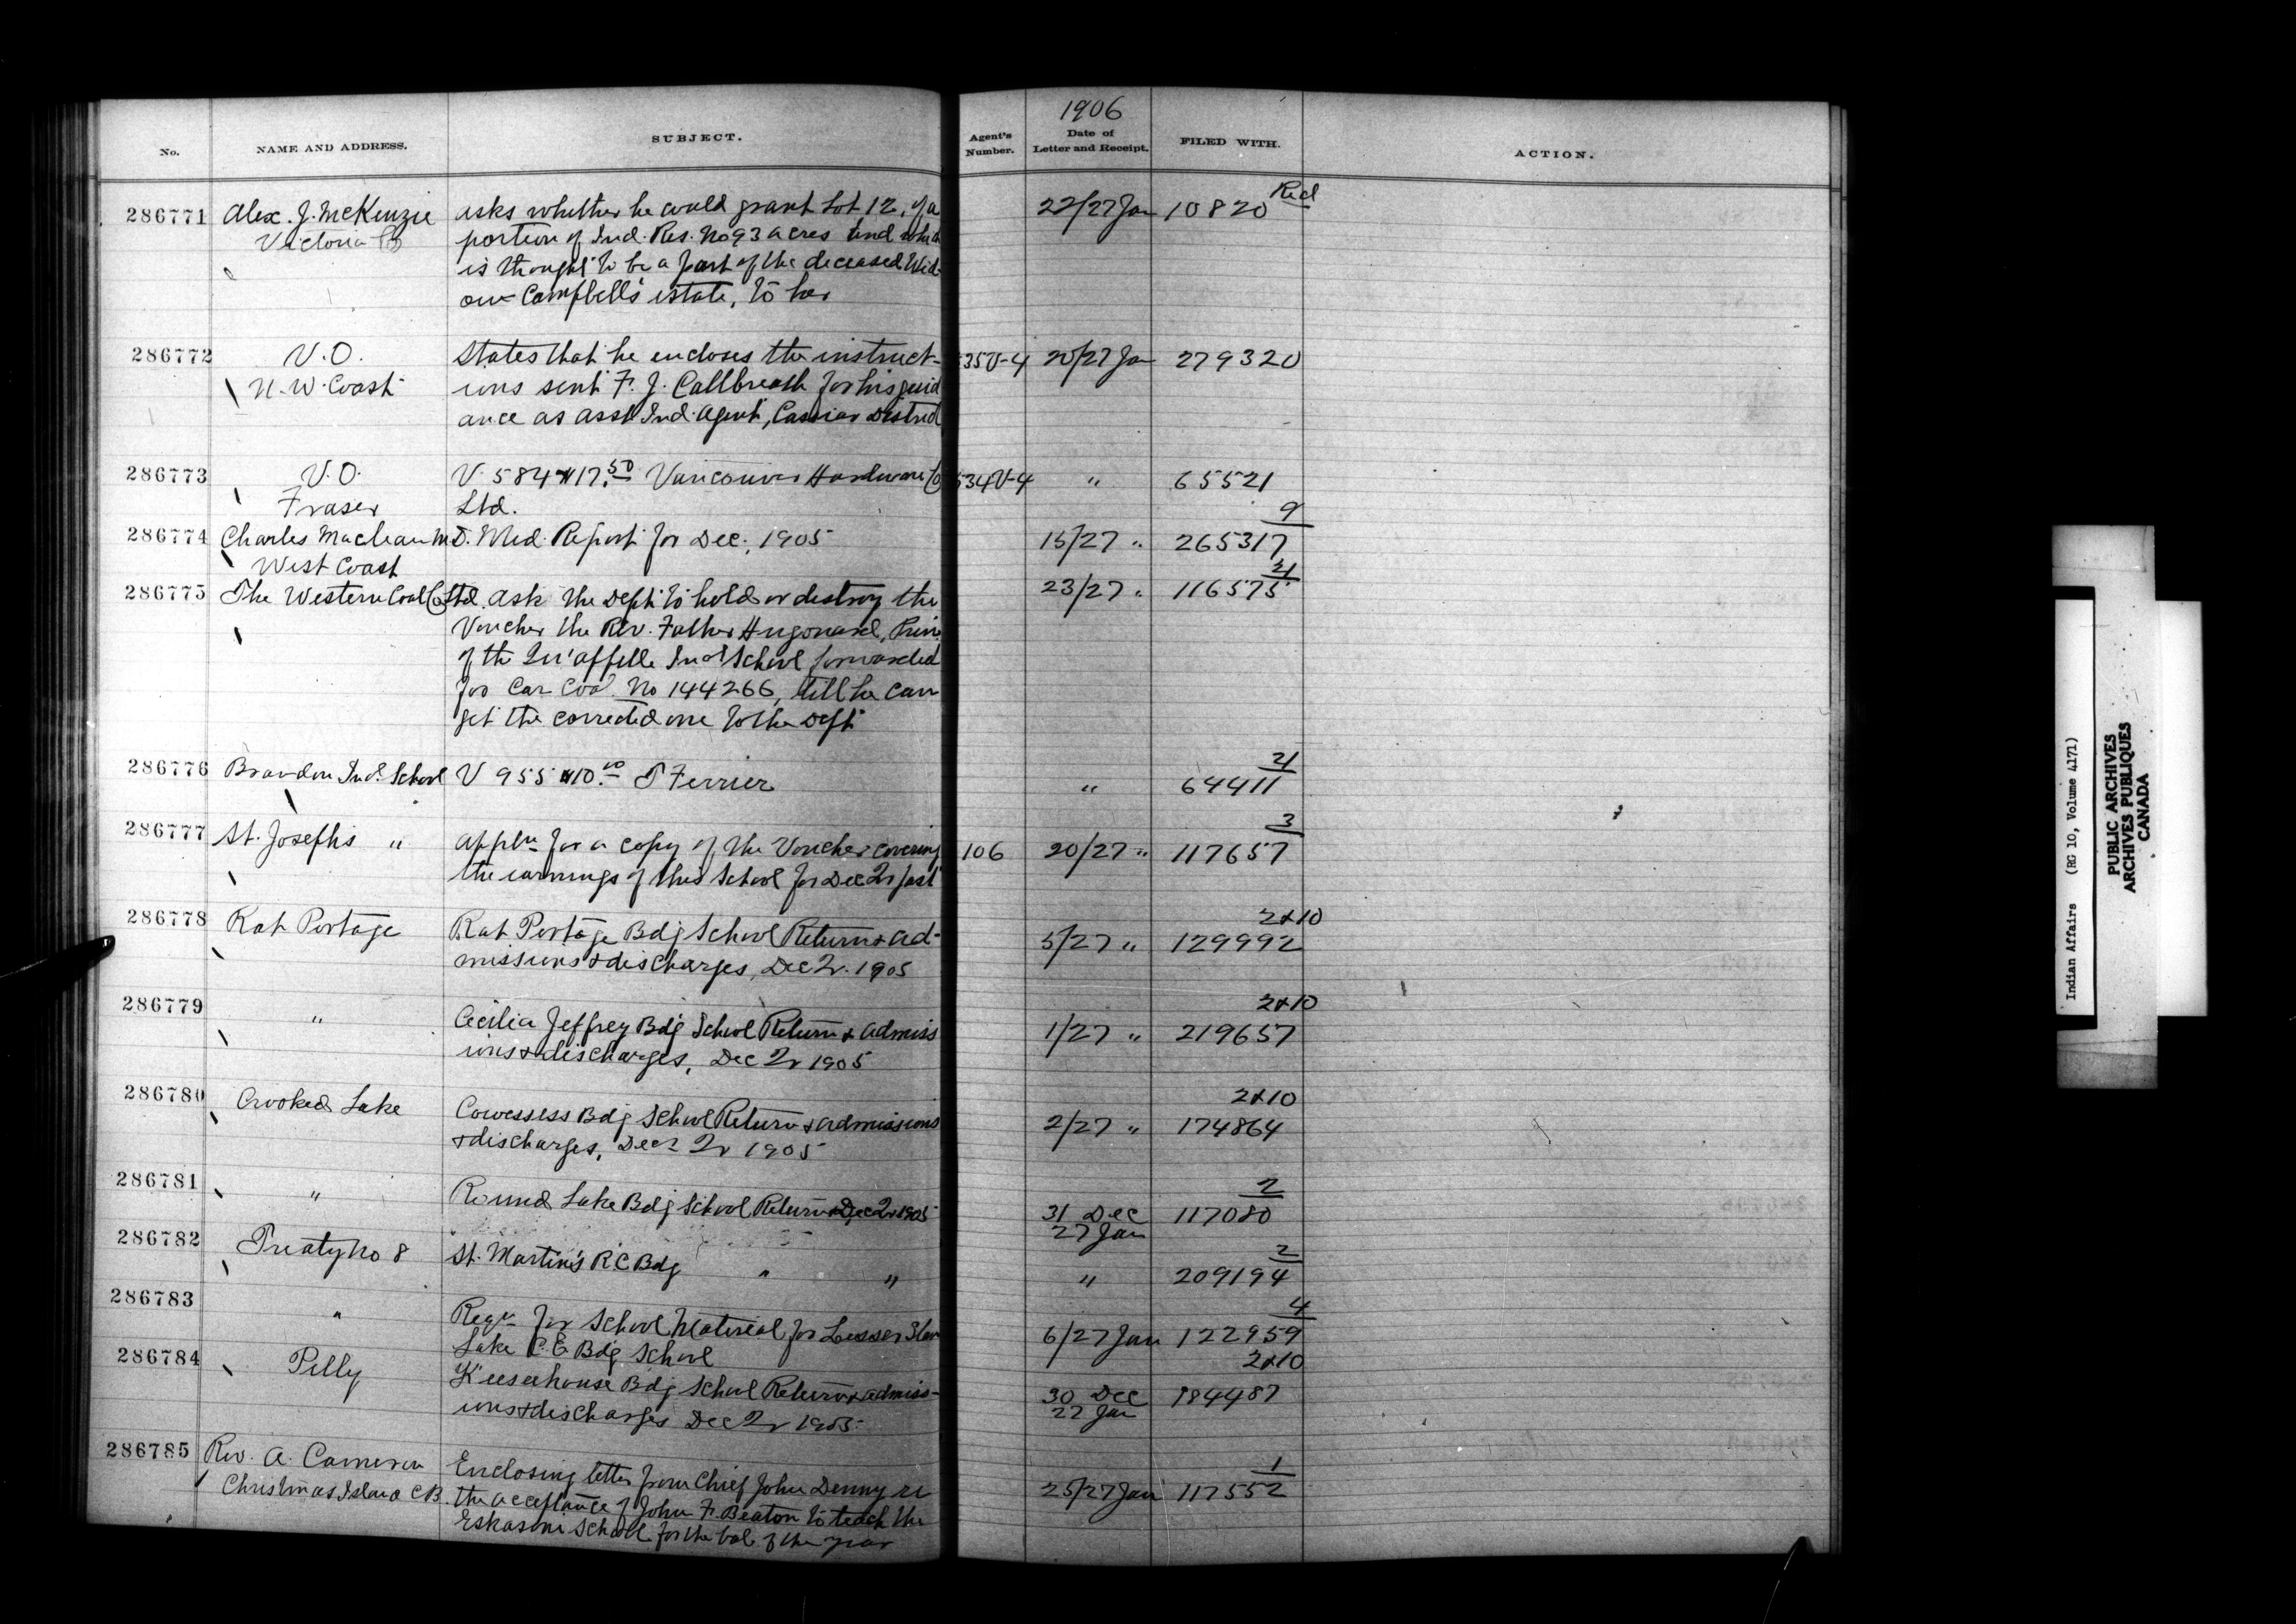 1906
No.
NAME AND ADDRESS.
SUBJECT.
Agent's Number.
Date of Letter and Receipt.
FILED WITH.
ACTION.
286771 Alex. J. McKenzie asks whether he could grant Lot 12, of a 22/27 Jan 10820 Red
Victoria portion of Ind. Res. No 93 acres and which
is thought to be a part of the deceased Wid-
ow Campbell's estate, to her
286772 V.O. States that he encloses the instruct- 535V-4 20/27 Jan 279320
N.W. Coast ions sent F. J. Callbreath for his guid
ance as asst Ind. Agent, Cassiar District
286773 V.O. V. 584 $17.50 Vancouver Hardware Co 534V-4 " 65521
Fraser Ltd.
9
286774 Charles Maclean M.D. Med. Report for Dec., 1905 15/27 " 265317
West Coast
21
286775 The Western Coal Co Ltd. ask the Dept to hold or destroy the 23/27 " 116575
Voucher the Rev. Father Hugonard, Prin.
of the Qu'appelle Ind School forwarded
for Car Coal No 144266, till he can
get the corrected one to the Dept
21
286776 Brandon Ind. School V 955 $10.00 T Ferrier " 64411
3
286777 St. Josephs " Appln for a copy of the Voucher covering 106 20/27 " 117657
the earnings of this School for Dec Qr past
2&10
286778 Rat Portage Rat Portage Bdg School Return & ad- 5/27 " 129992
missions & discharges, Dec Qr. 1905
2&10
286779 " Cecilia Jeffrey Bdg School Return & admiss 1/27 " 219657
ions & discharges, Dec Qr 1905
2&10
286780 Crooked Lake Cowessess Bdg School Return & admissions 2/27 " 174864
& discharges, Decr Qr 1905
2
286781 " Round Lake Bdg School Return Dec Qr 1905 31 Dec 117080
27 Jan
2
286782 Treaty No 8 St. Martin's R.C Bdg " " " 209194
4
286783 " Reqn for School Material for Lesser Slav 6/27 Jan 122959
Lake C.E Bdg School
2&10
286784 Pelly Keeseehouse Bdg School Return & admiss- 30 Dec 184487
ions & discharges Dec Qr 1905 27 Jan
1
286785 Rev. A. Cameron Enclosing letter from Chief John Denny re 25/27 Jan 117552
Christmas Island C B. the acceptance of John F. Beaton to teach the
Eskasoni School for the bal. of the year
Indian Affairs (RG 10, Volume 4171)
PUBLIC ARCHIVES
ARCHIVES PUBLIQUES
CANADA